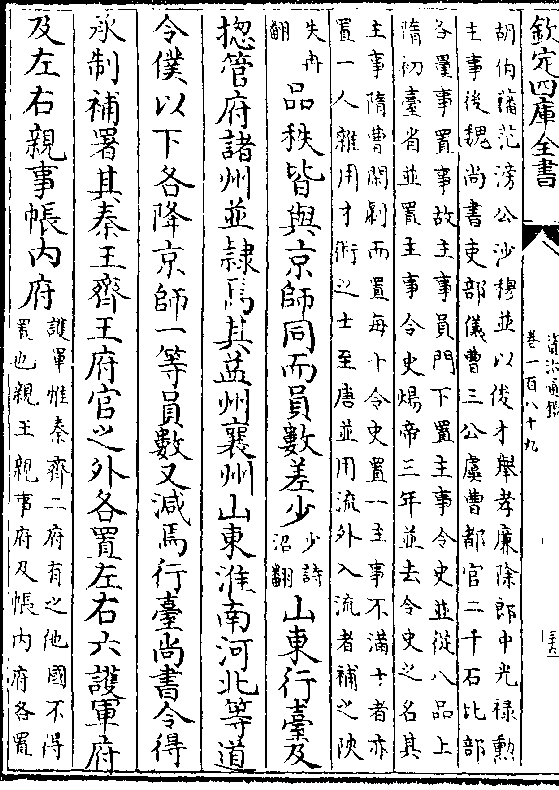 欽定四庫全書
資治通鑑
卷一百八十九
胡伯蕃范滂公沙穆並以俊才舉孝廉除郎中光祿勲
主事後魏尚書吏部儀曹三公虞曹都官二千石比部
各量事置事故主事員門下置主事令史並從八品上
隋初臺省並置主事令史煬帝三年並去令史之名其
主事隋曹閑劇而置每十令史置一主事不滿十者亦
置一人雜用才術之士至唐並用流外入流者補之陜
失冉
翻
品秩皆與京師同而員數差少
少詩
沼翻
山東行臺及
揔管府諸州並隸焉其益州襄州山東淮南河北等道
令僕以下各降京師一等員數又減焉行臺尚書令得
承制補署其秦王齊王府官之外各置左右六護軍府
及左右親事帳内府
護軍惟秦齊二府有之他國不得
置也親王親事府及帳内府各置